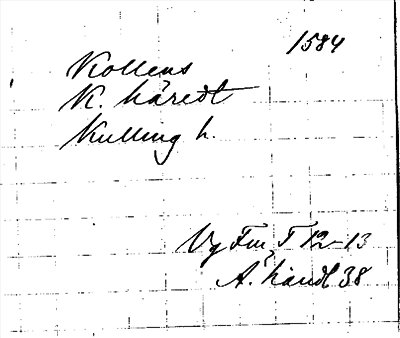 1584
Kollens
K. häredt
Kulling h.
Vg Fm I 12-13
A. handl 38